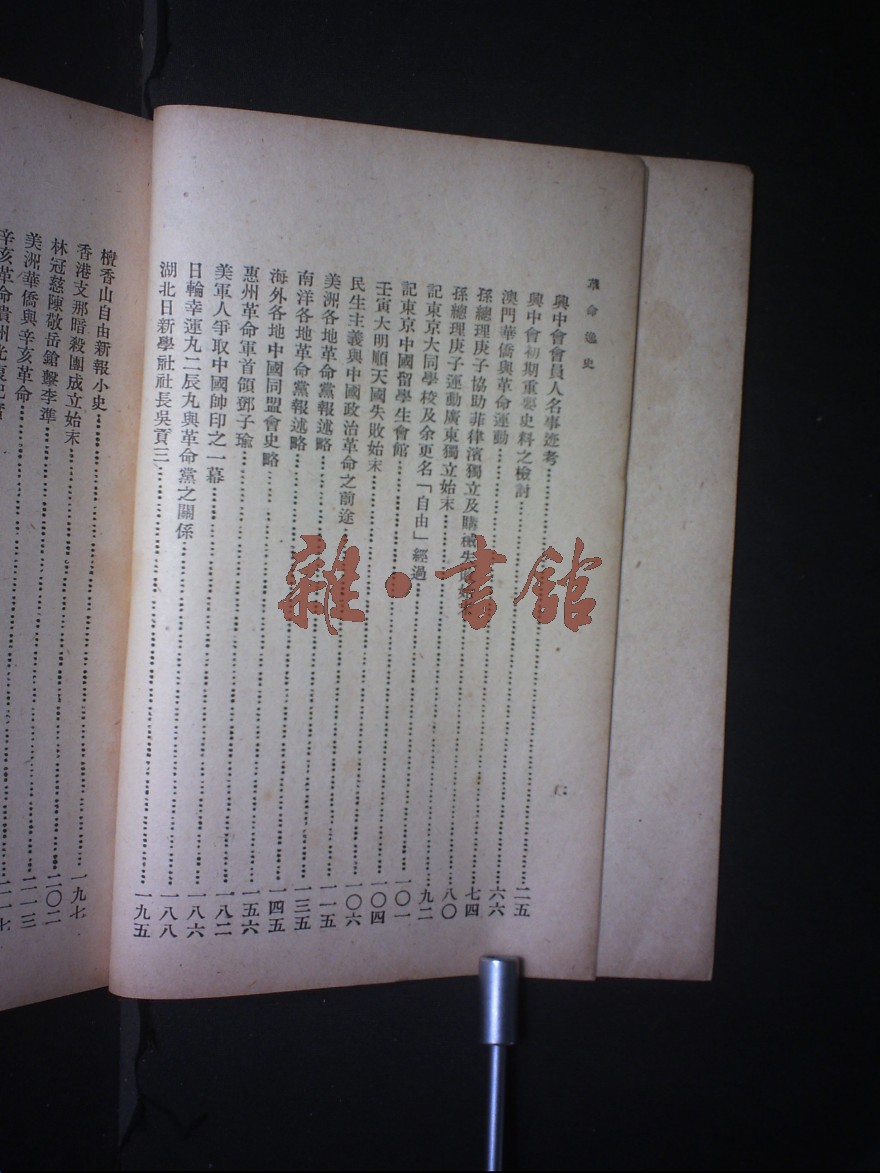 革命逸史
興中會會員人名事迹考………二五
興中會初期重要史料之檢討………六六
澳門華僑與革命運動………七四
孫總理庚子協助菲律濱獨立及購械失敗始末………八〇
孫總理庚子運動廣東獨立始末………九二
記東京大同學校及余更名「自由」經過………一〇一
記東京中國留學生會館………一〇四
壬寅大明順天國失敗始末………一〇六
民生主義與中國政治革命之前途………一一五
美洲各地革命黨報述略………一三五
南洋各地革命黨報述略………一四五
海外各地中國同盟會史略………一五六
惠州革命軍首領鄧子瑜………一八二
美軍人爭取中國帥印之一幕………一八六
日輪幸運丸二辰丸與革命黨之關係………一八八
湖北日新學社社長吳貢三………一九五
檀香山自由新報小史………一九七
香港支那暗殺團成立始末………二〇二
林冠慈陳敬岳鎗擊李準………二一三
美洲華僑與辛亥革命………二一七
辛亥革命貴州光復紀
雜·書館